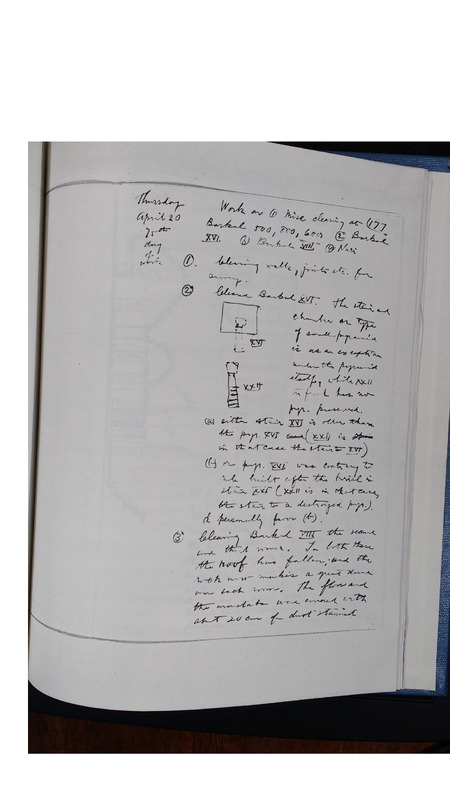 Thursday
April 20
75th
day
of
work
Work on ① Misc clearing at (177
Barkal 500, 800, 600 ② Barkal
XVI. ③ Barkal VIII ④ Nuri
①. Cleaning walls, joints etc. for
survey.
② Cleared Barkal XVI. The stair and
chamber or type
of small pyramid
is as an exception
under the pyramid
itself, while XXII
in fact has no
pyr. preserved.
XVI
XXII
(a) either stair XVI is older than
the pyr. XVI (XXII is
in that case the stair XVI)
(b) or pyr. XVI was contrary to
rule built after the burial in
stair XVI (XXII is in that case
the stair to a destroyed pyr.).
I personally favor (b).
③ Clearing Barkal VIII the second
and third rooms. In both these
the roof has fallen and the
rock now makes a great dome
over each room. The floor and
the mastaba were covered with
about 20 cm of dust stained